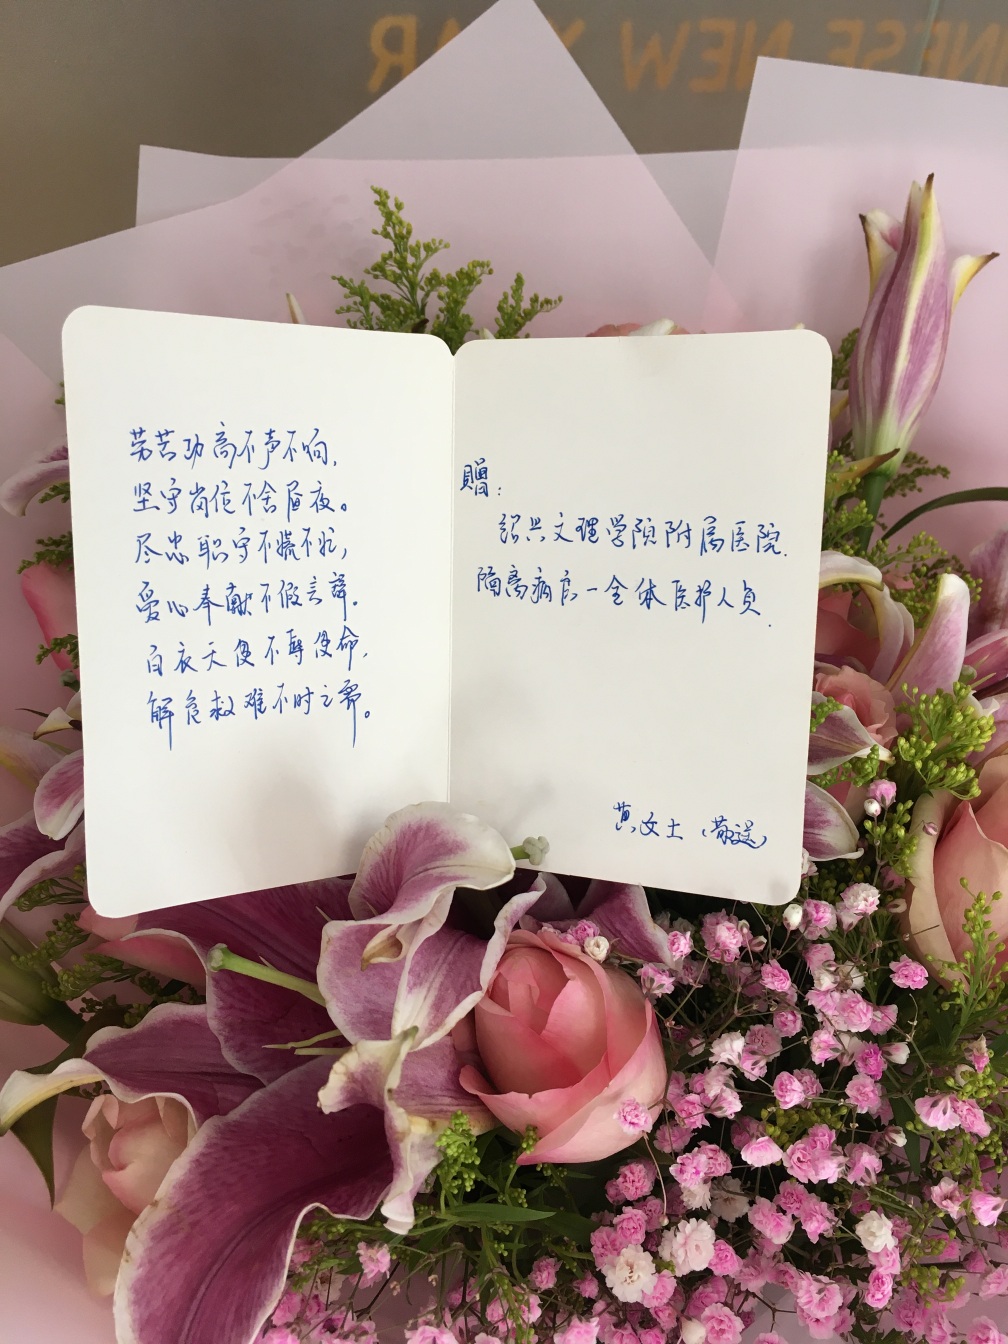 劳苦功高不声不响,
坚守岗位不舍昼夜。
尽忠职守不慌不忙,
爱心奉献不假言辞.
白衣天使不辱使命,
解危救难不时之需。
贈:
绍兴文理学院附属医院.
隔离病房一全体医护人员.
黄女士(敬送)